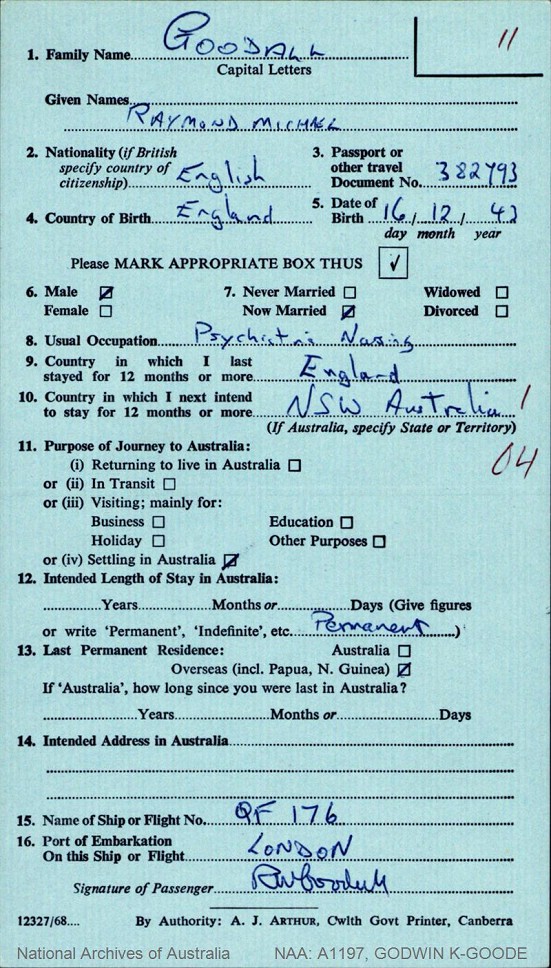 11
1. Family Name GOODALL
Capital Letters
Given Names
RAYMOND MICHAEL
2. Nationality (if British specify country of citizenship) English
3. Passport or other travel Document No. 382793
4. Country of Birth England
5. Date of Birth 16 / 12 / 42
day month year
Please MARK APPROPRIATE BOX THUS ✓
6. Male ☑ 7. Never Married ☐ Widowed ☐
Female ☐ Now Married ☑ Divorced ☐
8. Usual Occupation Psychiatric Nursing
9. Country in which I last
stayed for 12 months or more England
10. Country in which I next intend
to stay for 12 months or more NSW Australia 1
(If Australia, specify State or Territory)
04
11. Purpose of Journey to Australia:
(i) Returning to live in Australia ☐
or (ii) In Transit ☐
or (iii) Visiting; mainly for:
Business ☐ Education ☐
Holiday ☐ Other Purposes ☐
or (iv) Settling in Australia ☑
12. Intended Length of Stay in Australia:
Years Months or Days (Give figures
or write 'Permanent', 'Indefinite', etc. Permanent )
13. Last Permanent Residence: Australia ☐
Overseas (incl. Papua, N. Guinea) ☑
If 'Australia', how long since you were last in Australia?
Years Months or Days
14. Intended Address in Australia
15. Name of Ship or Flight No. QF 176
16. Port of Embarkation
On this Ship or Flight LONDON
Signature of Passenger RMGoodall
12327/68.... By Authority: A. J. ARTHUR, Cwlth Govt Printer, Canberra
National Archives of Australia NAA: A1197, GODWIN K-GOODE